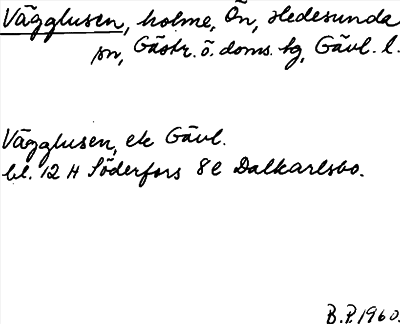 Vägglusen, holme, Ön, Hedesunda
sn, Gästr. ö. doms. tg, Gävl. l.
Vägglusen, ek Gävl.
bl. 12 H Söderfors 8 e Dalkarlsbo.
B.P. 1960.